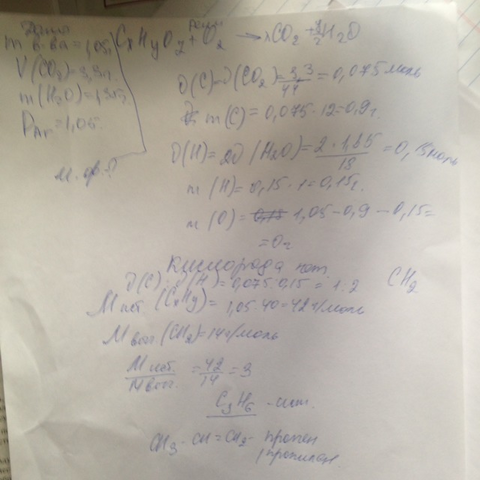 Дано
m в-ва = 1,05г
V(CO2)=3,3г
m(H2O)=1,35г
DAr=1,05.
М. ф. ?
CxHyOz + O2 → xCO2 + y/2 H2O
ν(C)=ν(CO2)=3,3/44=0,075моль
m(C)=0,075·12=0,9г
ν(H)=2ν(H2O)=2·1,35/18=0,15моль
m(H)=0,15·1=0,15г.
m(O)=1,05-0,9-0,15=
=0г
Кислорода нет
ν(C):ν(H)=0,075:0,15=1:2 CH2
M ист. (CxHy)=1,05·40=42г/моль
M (CH2)=14г/моль
M ист. =42/14=3
C3H6 - ист.
CH3-CH=CH2 пропен